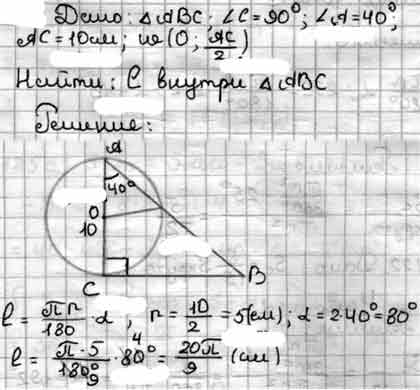 Дано: △ABC; ∠C=90°; ∠A=40°;
AC=10см; w(O; AC/2)
Найти: l внутри △ABC
Решение:
A
40°
O
10
C
B
l = πr/180 · α, r = 10/2 = 5(см); α = 2·40° = 80°
l = π·5/180° 9 · 80° 4 = 20π/9 (см)